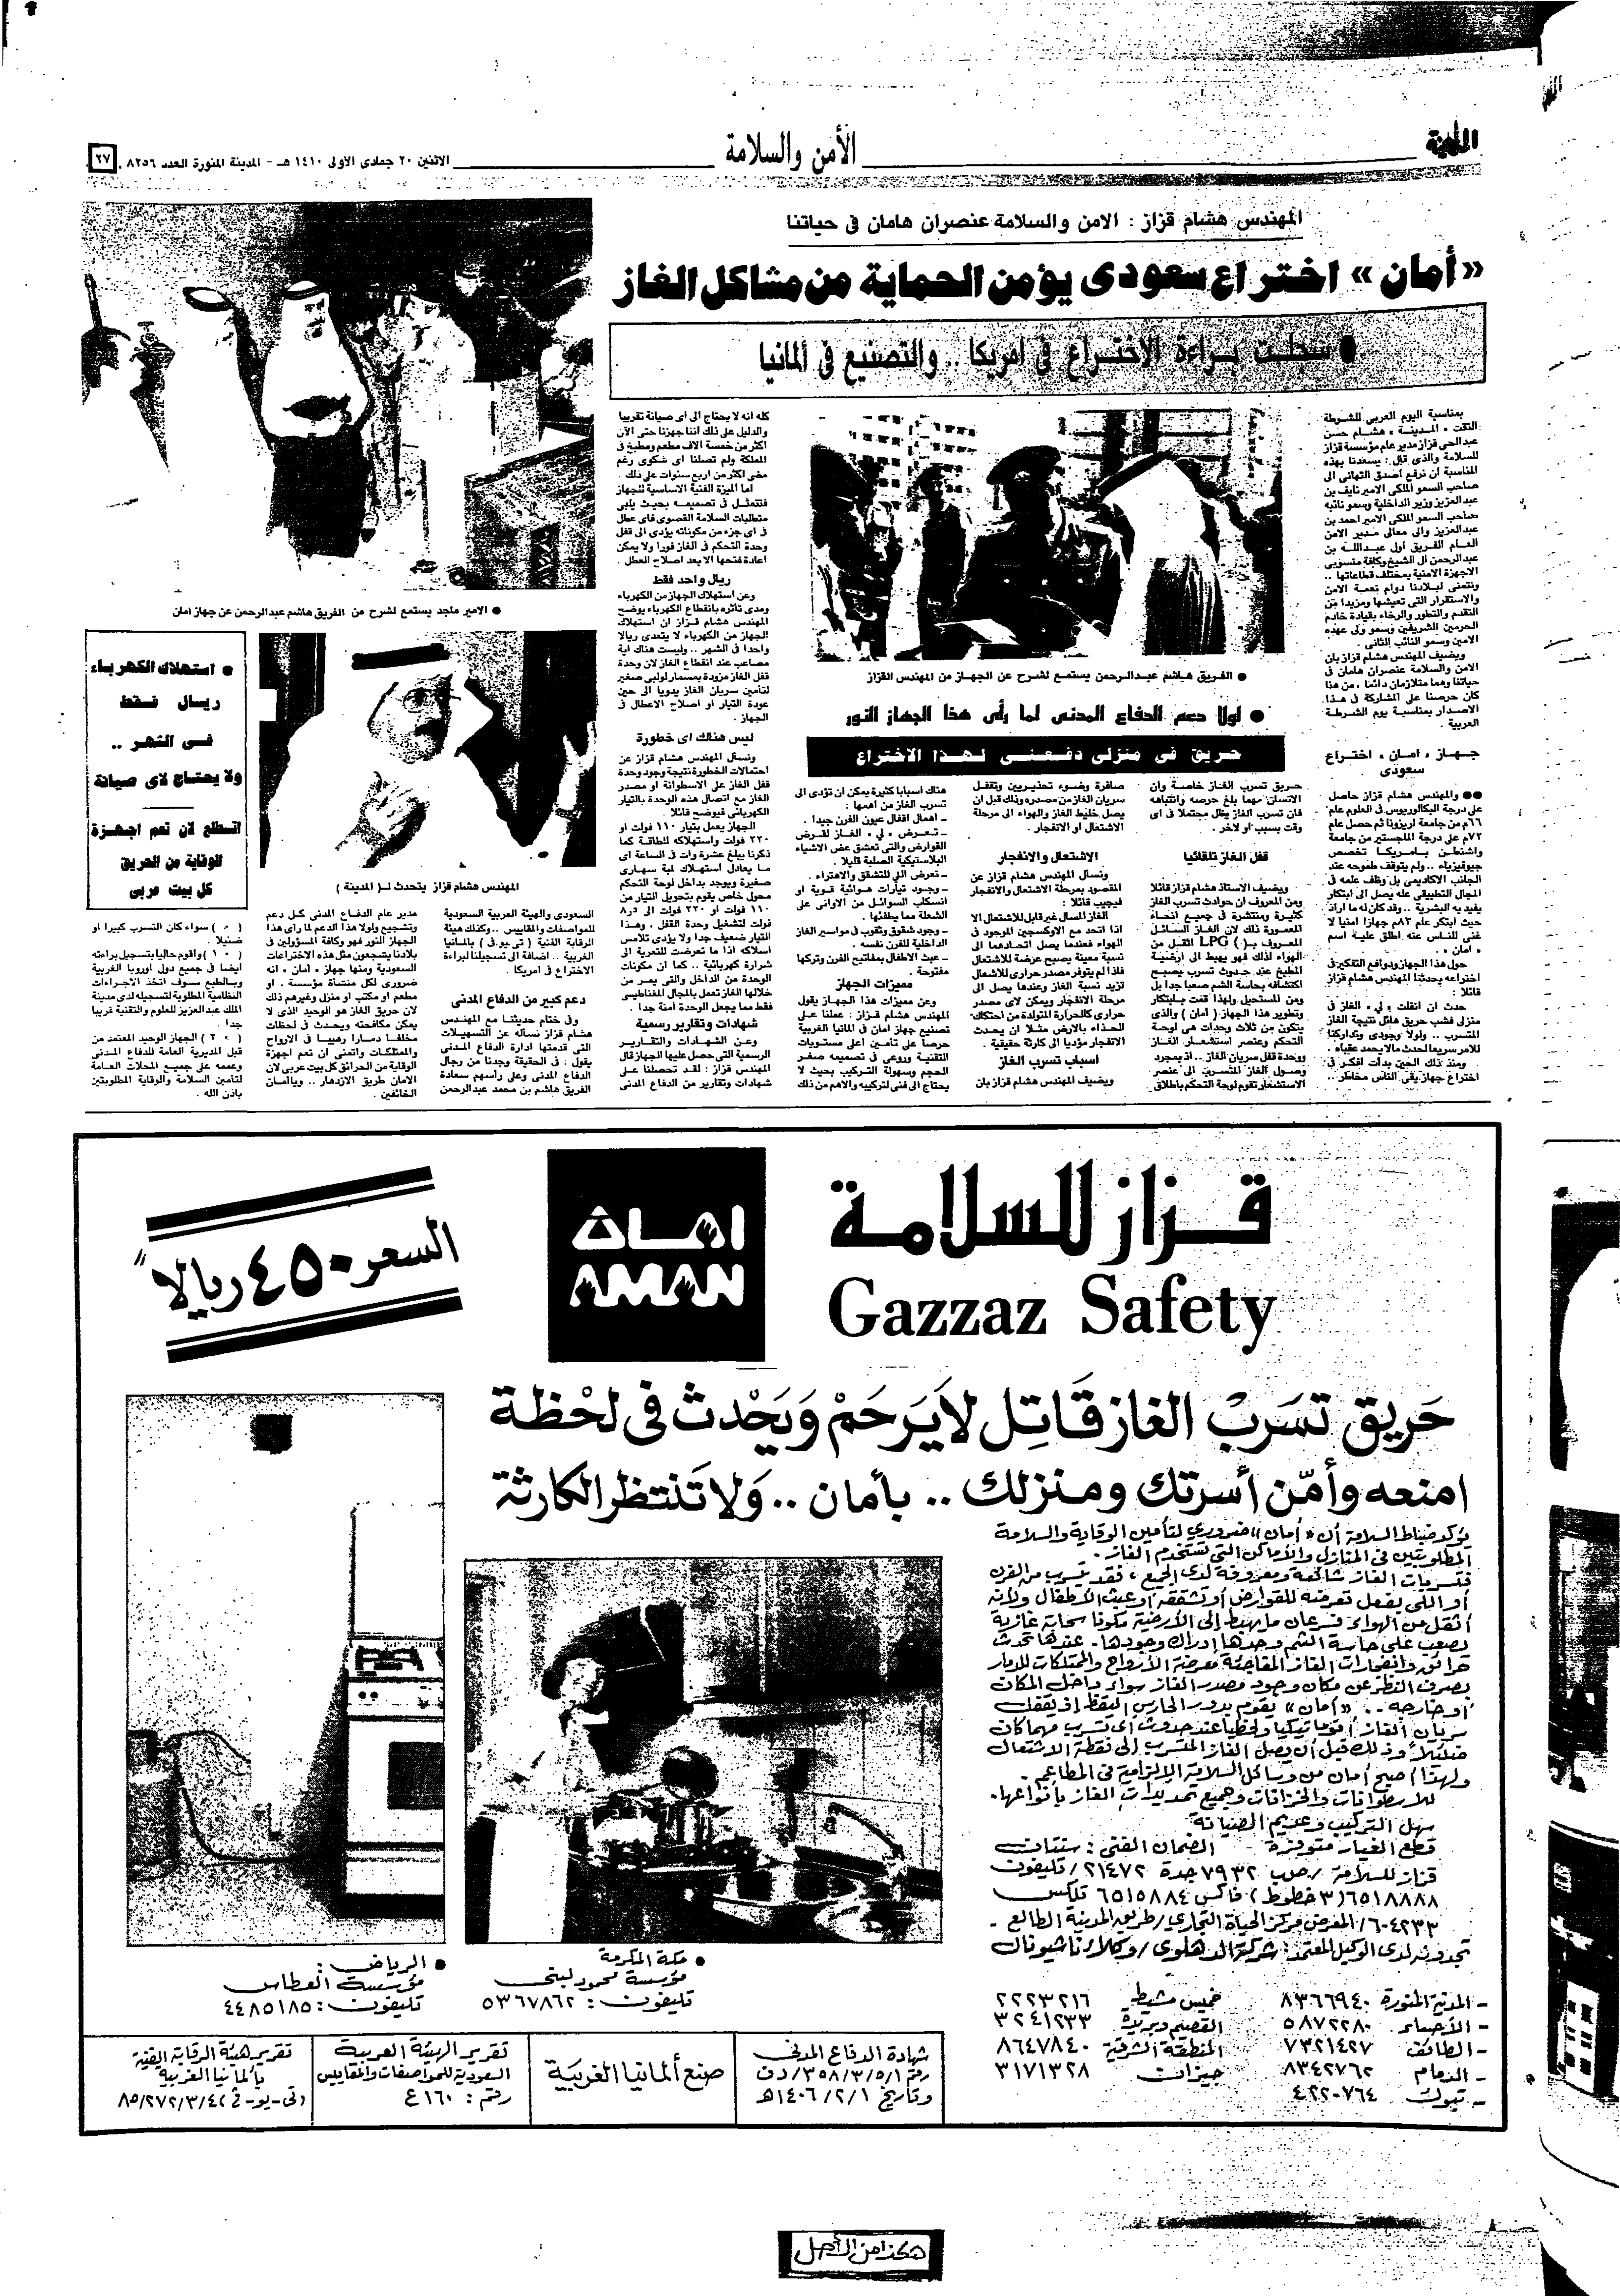 المدينة
الأمن والسلامة
الاثنين ٢٠ جمادى الأولى ١٤١٠ هـ - المدينة المنورة العدد ٨٢٥٦
٢٧
المهندس هشام قزاز : الامن والسلامة عنصران هامان فى حياتنا
«أمان» اختراع سعودى يؤمن الحماية من مشاكل الغاز
● سجلت براءة الاختراع فى امريكا .. والتصنيع فى ألمانيا
بمناسبة اليوم العربى للشرطة
التقت « المدينة » هشام حسن
عبدالحى قزاز مدير عام مؤسسة قزاز
للسلامة والذى قال : يسعدنا بهذه
المناسبة ان نرفع أصدق التهانى الى
صاحب السمو الملكى الامير نايف بن
عبدالعزيز وزير الداخلية وسمو نائبه
صاحب السمو الملكى الامير احمد بن
عبدالعزيز والى معالى مدير الامن
العام الفريق اول عبدالله بن
عبدالرحمن آل الشيخ وكافة منسوبى
الاجهزة الامنية بمختلف قطاعاتها ..
ونتمنى لبلادنا دوام نعمة الامن
والاستقرار التى نعيشها ومزيدا من
التقدم والتطور والرخاء بقيادة خادم
الحرمين الشريفين وسمو ولى عهده
الامين وسمو النائب الثانى .
ويضيف المهندس هشام قزاز بان
الامن والسلامة عنصران هامان فى
حياتنا وهما متلازمان دائما ، من هنا
كان حرصنا على المشاركة فى هذا
الاصدار بمناسبة يوم الشرطة
العربية .
جهاز « امان » اختراع
سعودى
●● والمهندس هشام قزاز حاصل
على درجة البكالوريوس فى العلوم عام
٦٦م من جامعة اريزونا ثم حصل عام
٧٢م على درجة الماجستير من جامعة
واشنطن بامريكا تخصص
جيوفيزياء . ولم يتوقف طموحه عند
الجانب الاكاديمى بل وظف علمه فى
المجال التطبيقى عله يصل الى ابتكار
يفيد به البشرية .. وقد كان له ما اراد
حيث ابتكر عام ٨٣م جهازا امنيا لا
غنى للناس عنه اطلق عليه اسم
« امان » .
حول هذا الجهاز ودوافع التفكير فى
اختراعه يحدثنا المهندس هشام قزاز
قائلا :
حدث ان انفلت « لي » الغاز فى
منزلى فشب حريق هائل نتيجة الغاز
المتسرب .. ولولا وجودى وتداركنا
للامر سريعا لحدث مالا يحمد عقباه .
ومنذ ذلك الحين بدأت افكر فى
اختراع جهاز يقى الناس مخاطر ..
● الفريق هاشم عبدالرحمن يستمع لشرح عن الجهاز من المهندس القزاز
● لولا دعم الدفاع المدنى لما رأى هذا الجهاز النور
حريق فى منزلى دفعنى لهذا الاختراع
حريق تسرب الغاز خاصة وان
الانسان مهما بلغ حرصه وانتباهه
فان تسرب الغاز يظل محتملا فى اى
وقت بسبب او لاخر .
قفل الغاز تلقائيا
ويضيف الاستاذ هشام قزاز قائلا
ومن المعروف ان حوادث تسرب الغاز
كثيرة ومنتشرة فى جميع انحاء
المعمورة ذلك لان الغاز السائل
المعروف بـ( LPG ) اثقل من
الهواء لذلك فهو يهبط الى ارضية
المطبخ عند حدوث تسرب يصبح
اكتشافه بحاسة الشم صعبا جدا بل
ومن المستحيل ولهذا قمت بابتكار
وتطوير هذا الجهاز ( أمان ) والذى
يتكون من ثلاث وحدات هى لوحة
التحكم وعنصر استشعار الغاز
ووحدة قفل سريان الغاز .. اذ بمجرد
وصول الغاز المتسرب الى عنصر
الاستشعار تقوم لوحة التحكم باطلاق
صافرة وضوء تحذيريين وتقفل
سريان الغاز من مصدره وذلك قبل ان
يصل خليط الغاز والهواء الى مرحلة
الاشتعال او الانفجار .
الاشتعال والانفجار
ونسأل المهندس هشام قزاز عن
المقصود بمرحلة الاشتعال والانفجار
فيجيب قائلا :
الغاز المسال غير قابل للاشتعال الا
اذا اتحد مع الاوكسجين الموجود فى
الهواء فعندما يصل اتحادهما الى
نسبة معينة يصبح عرضة للاشتعال
فاذا لم يتوفر مصدر حرارى للاشعال
تزيد نسبة الغاز وعندها يصل الى
مرحلة الانفجار ويمكن لاى مصدر
حرارى كالحرارة المتولدة من احتكاك
الحذاء بالارض مثلا ان يحدث
الانفجار مؤديا الى كارثة حقيقية .
اسباب تسرب الغاز
ويضيف المهندس هشام قزاز بان
هناك اسبابا كثيرة يمكن ان تؤدى الى
تسرب الغاز من اهمها :
ـ اهمال اقفال عيون الفرن جيدا .
ـ تعرض « لي » الغاز لقرض
القوارض والتى تعشق عض الاشياء
البلاستيكية الصلبة قليلا .
ـ تعرض الى للتشقق والاهتراء .
ـ وجود تيارات هوائية قوية او
انسكاب السوائل من الاوانى على
الشعلة مما يطفئها .
ـ وجود شقوق وثقوب فى مواسير الغاز
الداخلية للفرن نفسه .
ـ عبث الاطفال بمفاتيح الفرن وتركها
مفتوحة .
مميزات الجهاز
وعن مميزات هذا الجهاز يقول
المهندس هشام قزاز : عملنا على
تصنيع جهاز امان فى المانيا الغربية
حرصا على تأمين اعلى مستويات
التقنية وروعى فى تصميمه صغر
الحجم وسهولة التركيب بحيث لا
يحتاج الى فنى لتركيبه والاهم من ذلك
كله انه لا يحتاج الى اى صيانة تقريبا
والدليل على ذلك اننا جهزنا حتى الآن
اكثر من خمسة الاف مطعم ومطبخ فى
المملكة ولم تصلنا اى شكوى رغم
مضى اكثر من اربع سنوات على ذلك .
اما الميزة الفنية الاساسية للجهاز
فتتمثل فى تصميمه بحيث يلبى
متطلبات السلامة القصوى فاى عطل
فى اى جزء من مكوناته يؤدى الى قفل
وحدة التحكم فى الغاز فورا ولا يمكن
اعادة فتحها الا بعد اصلاح العطل .
ريال واحد فقط
وعن استهلاك الجهاز من الكهرباء
ومدى تأثره بانقطاع الكهرباء يوضح
المهندس هشام قزاز ان استهلاك
الجهاز من الكهرباء لا يتعدى ريالا
واحدا فى الشهر .. وليست هناك اية
مصاعب عند انقطاع الغاز لان وحدة
قفل الغاز مزودة بمسمار لولبى صغير
لتأمين سريان الغاز يدويا الى حين
عودة التيار او اصلاح الاعطال فى
الجهاز .
ليس هنالك اى خطورة
ونسأل المهندس هشام قزاز عن
احتمالات الخطورة نتيجة وجود وحدة
قفل الغاز على الاسطوانة او مصدر
الغاز مع اتصال هذه الوحدة بالتيار
الكهربائى فيوضح قائلا :
الجهاز يعمل بتيار ١١٠ فولت او
٢٢٠ فولت واستهلاكه للطاقة كما
ذكرنا يبلغ عشرة وات فى الساعة اى
ما يعادل استهلاك لمبة سهارى
صغيرة ويوجد بداخل لوحة التحكم
محول خاص يقوم بتحويل التيار من
١١٠ فولت او ٢٢٠ فولت الى ٨ر٥
فولت لتشغيل وحدة القفل ، وهذا
التيار ضعيف جدا ولا يؤدى تلامس
اسلاكه اذا ما تعرضت للتعرية الى
شرارة كهربائية .. كما ان مكونات
الوحدة من الداخل والتى يمر من
خلالها الغاز تعمل بالمجال المغناطيسى
فقط مما يجعل الوحدة آمنة جدا .
شهادات وتقارير رسمية
وعن الشهادات والتقارير
الرسمية التى حصل عليها الجهاز قال
المهندس قزاز : لقد تحصلنا على
شهادات وتقارير من الدفاع المدنى
● الامير ماجد يستمع لشرح من الفريق هاشم عبدالرحمن عن جهاز امان
● استهلاك الكهرباء
ريال فقط
فى الشهر ..
ولا يحتاج لاى صيانة
اتطلع لان تعم اجهزة
الوقاية من الحريق
كل بيت عربى
المهندس هشام قزاز يتحدث لـ( المدينة )
السعودى والهيئة العربية السعودية
للمواصفات والمقاييس .. وكذلك هيئة
الرقابة الفنية ( تى.يو.ف ) بالمانيا
الغربية .. اضافة الى تسجيلنا لبراءة
الاختراع فى امريكا .
دعم كبير من الدفاع المدنى
وفى ختام حديثنا مع المهندس
هشام قزاز نسأله عن التسهيلات
التى قدمتها ادارة الدفاع المدنى
يقول : فى الحقيقة وجدنا من رجال
الدفاع المدنى وعلى رأسهم سعادة
الفريق هاشم بن محمد عبدالرحمن
مدير عام الدفاع المدنى كل دعم
وتشجيع ولولا هذا الدعم لما رأى هذا
الجهاز النور فهو وكافة المسؤولين فى
بلادنا يتجمعون مثل هذه الاختراعات
السعودية ومنها جهاز « امان » انه
ضرورى لكل منشأة مؤسسة ، او
مطعم او مكتب او منزل وغيرهم ذلك
لان حريق الغاز هو الوحيد الذى لا
يمكن مكافحته ويحدث فى لحظات
مخلفا دمارا رهيبا فى الارواح
والممتلكات واتمنى ان تعم اجهزة
الوقاية من الحرائق كل بيت عربى لان
الامان طريق الازدهار .. وياأمان
الخائفين .
( ٠ ) سواء كان التسرب كبيرا او
ضئيلا .
( ١٠ ) واقوم حاليا بتسجيل براءته
ايضا فى جميع دول اوروبا الغربية
وبالطبع سوف اتخذ الاجراءات
النظامية المطلوبة لتسجيله لدى مدينة
الملك عبدالعزيز للعلوم والتقنية قريبا
جدا .
( ٢٠ ) الجهاز الوحيد المعتمد من
قبل المديرية العامة للدفاع المدنى
وعممه على جميع المحلات العامة
لتامين السلامة والوقاية المطلوبتين
باذن الله .
قزاز للسلامة
Gazzaz Safety
امان
AMAN
السعر ٤٥٠ ريالاً
حَريق تسَربْ الغاز قَاتِل لايَرحَمْ وَيَحْدث فى لحْظة
امنعه وأمّن أسرتك ومنزلك .. بأمان .. وَلا تَنتظر الكارثة
يؤكد ضباط السلامة أن « أمان » ضروري لتأمين الوقاية والسلامة
المطلوبتين فى المنازل والأماكن التي تستخدم الغاز .
فتسربات الغاز شائعة ومعروفة لدى الجميع ، فقد تتسرب من الفرن
أو اللي بفعل تعرضه للقوارض أو تشققه أو عبث الأطفال ولأنه
أثقل من الهواء فسرعان ما يهبط إلى الأرضية مكونا سحابة غازية
يصعب على حاسة الشم وحدها إدراك وجودها . عندها تحدث
حرائق وانفجارات الغاز المفاجئة معرضة الأرواح والممتلكات للدمار
بصرف النظر عن مكان وجود مصدر الغاز سواء داخل المكان
أو خارجه .. «أمان» يقوم بدور الحارس اليقظ إذ يقفل
سريان الغاز أتوماتيكيا ولحظيا عند حدوث أى تسرب مهما كان
ضئيلاً وذلك قبل أن يصل الغاز المتسرب إلى نقطة الاشتعال
ولهذا أصبح أمان من وسائل السلامة الإلزامية فى المطاعم .
للاسطوانات والخزانات وجميع تمديدات الغاز بأنواعها .
سهل التركيب وعديم الصيانة
قطع الغيار متوفرة - الضمان الفنى : سنتان
قزاز للسلامة / صب ٧٩٣٢ جدة ٢١٤٧٢ / تليفون
٦٥١٨٨٨٨ (٣ خطوط) فاكس ٦٥١٥٨٨٤ تلكس
٦٠٤٢٣٣ / المعرض مركز الحياة التجاري / طريق المدينة الطالع .
تجدونه لدى الوكيل المعتمد : شركة الدهلوي / وكلاء ناشيونال
- المدينة المنورة ٨٣٦٦٩٤٠
خميس مشيط ٢٢٢٣٢١٦
- الأحساء ٥٨٧٢٢٨٠
القصيم وبريدة ٣٢٤١٢٣٣
- الطائف ٧٣٢١٤٢٧
المنطقة الشرقية ٨٦٤٧٨٤٠
- الدمام ٨٣٤٢٧٦٢
جيزان ٣١٧١٣٢٨
- تبوك ٤٢٢٠٧٦٤
● مكة المكرمة
مؤسسة محمود لبنى
تليفون : ٥٣٦٧٨٦٢
● الرياض :
مؤسسة العطاس
تليفون : ٤٤٨٥١٨٥
شهادة الدفاع المدنى
رقم ٣٥٨/٣/٥/١/دف
وتاريخ ١٤٠٦/٢/١هـ
صنع ألمانيا الغربية
تقرير الهيئة العربية
السعودية للمواصفات والمقاييس
رقم : ١٦٠ ع
تقرير هيئة الرقابة الفنية
بألمانيا الغربية
(تى-يو-ف ٨٥/٢٧٢/٣/٤٢
هكذا من الأصل